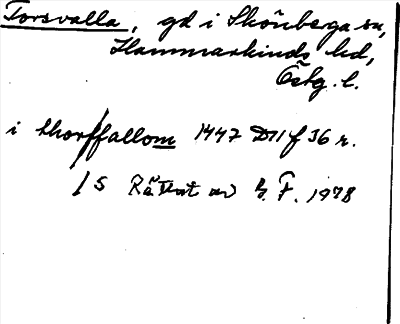 Torsvalla, gd i Skönberga sn,
Hammarkinds hd,
Östg. l.
i thorffallom 1447 D11 f 36 r.
/ s Rättat av G. F. 1978